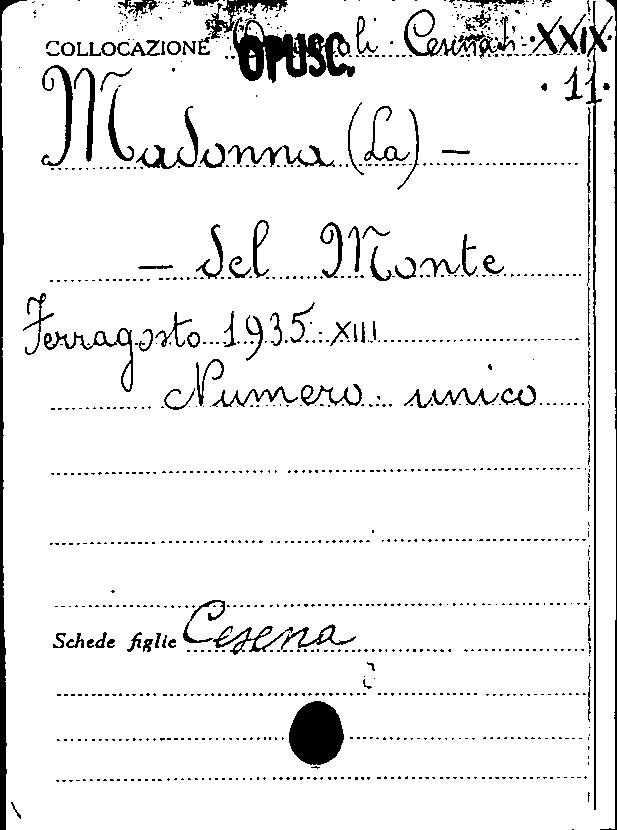 COLLOCAZIONE Opuscoli Cesenati XXIX
OPUSC.
. 11.
Madonna (La) —
— del Monte
Ferragosto 1935. XIII
Numero unico
Schede figlie Cesena